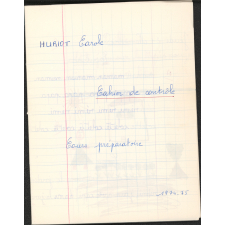 HURIOT Carole
Cahier de contrôle
Cours préparatoire
1974.75